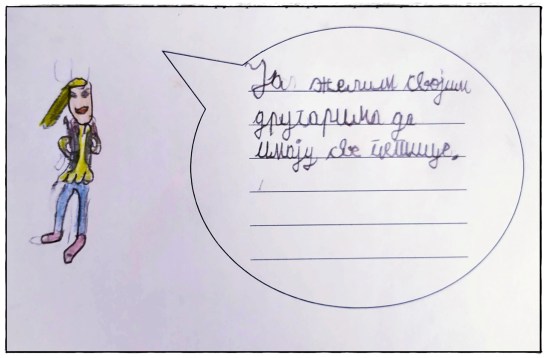 Ја желим својим
другарима да
имају све петице.